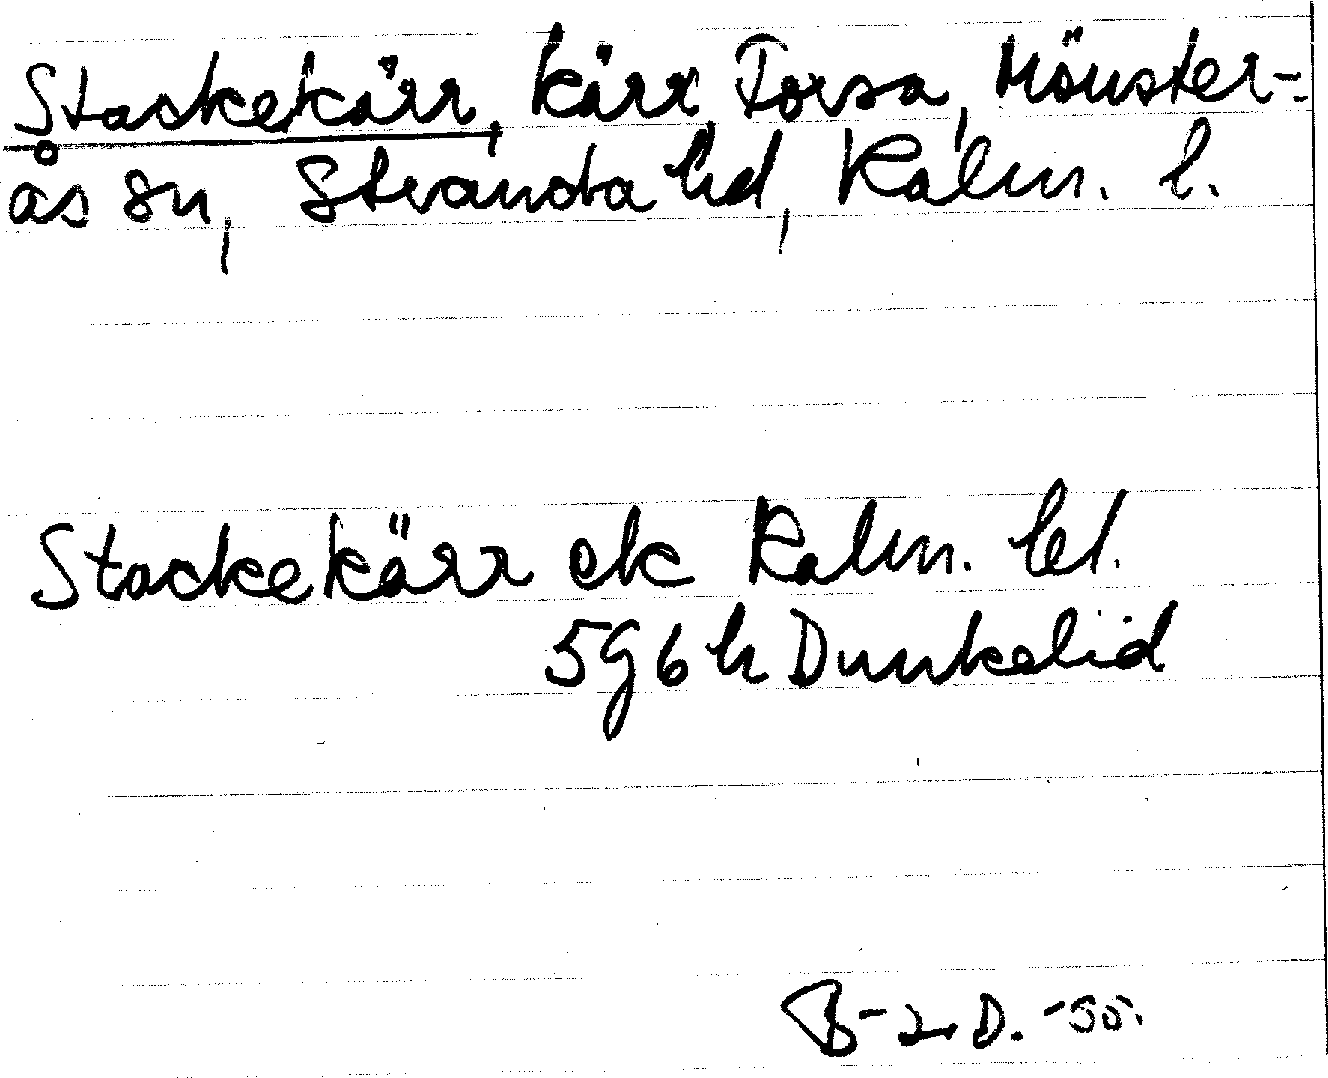 Stackekärr, kärr, Torsa, Mönster-
ås sn, Stranda hd, Kalm. l.
Stackekärr ek Kalm. bl.
5g6h Dunkelid
B-L. D. -55.